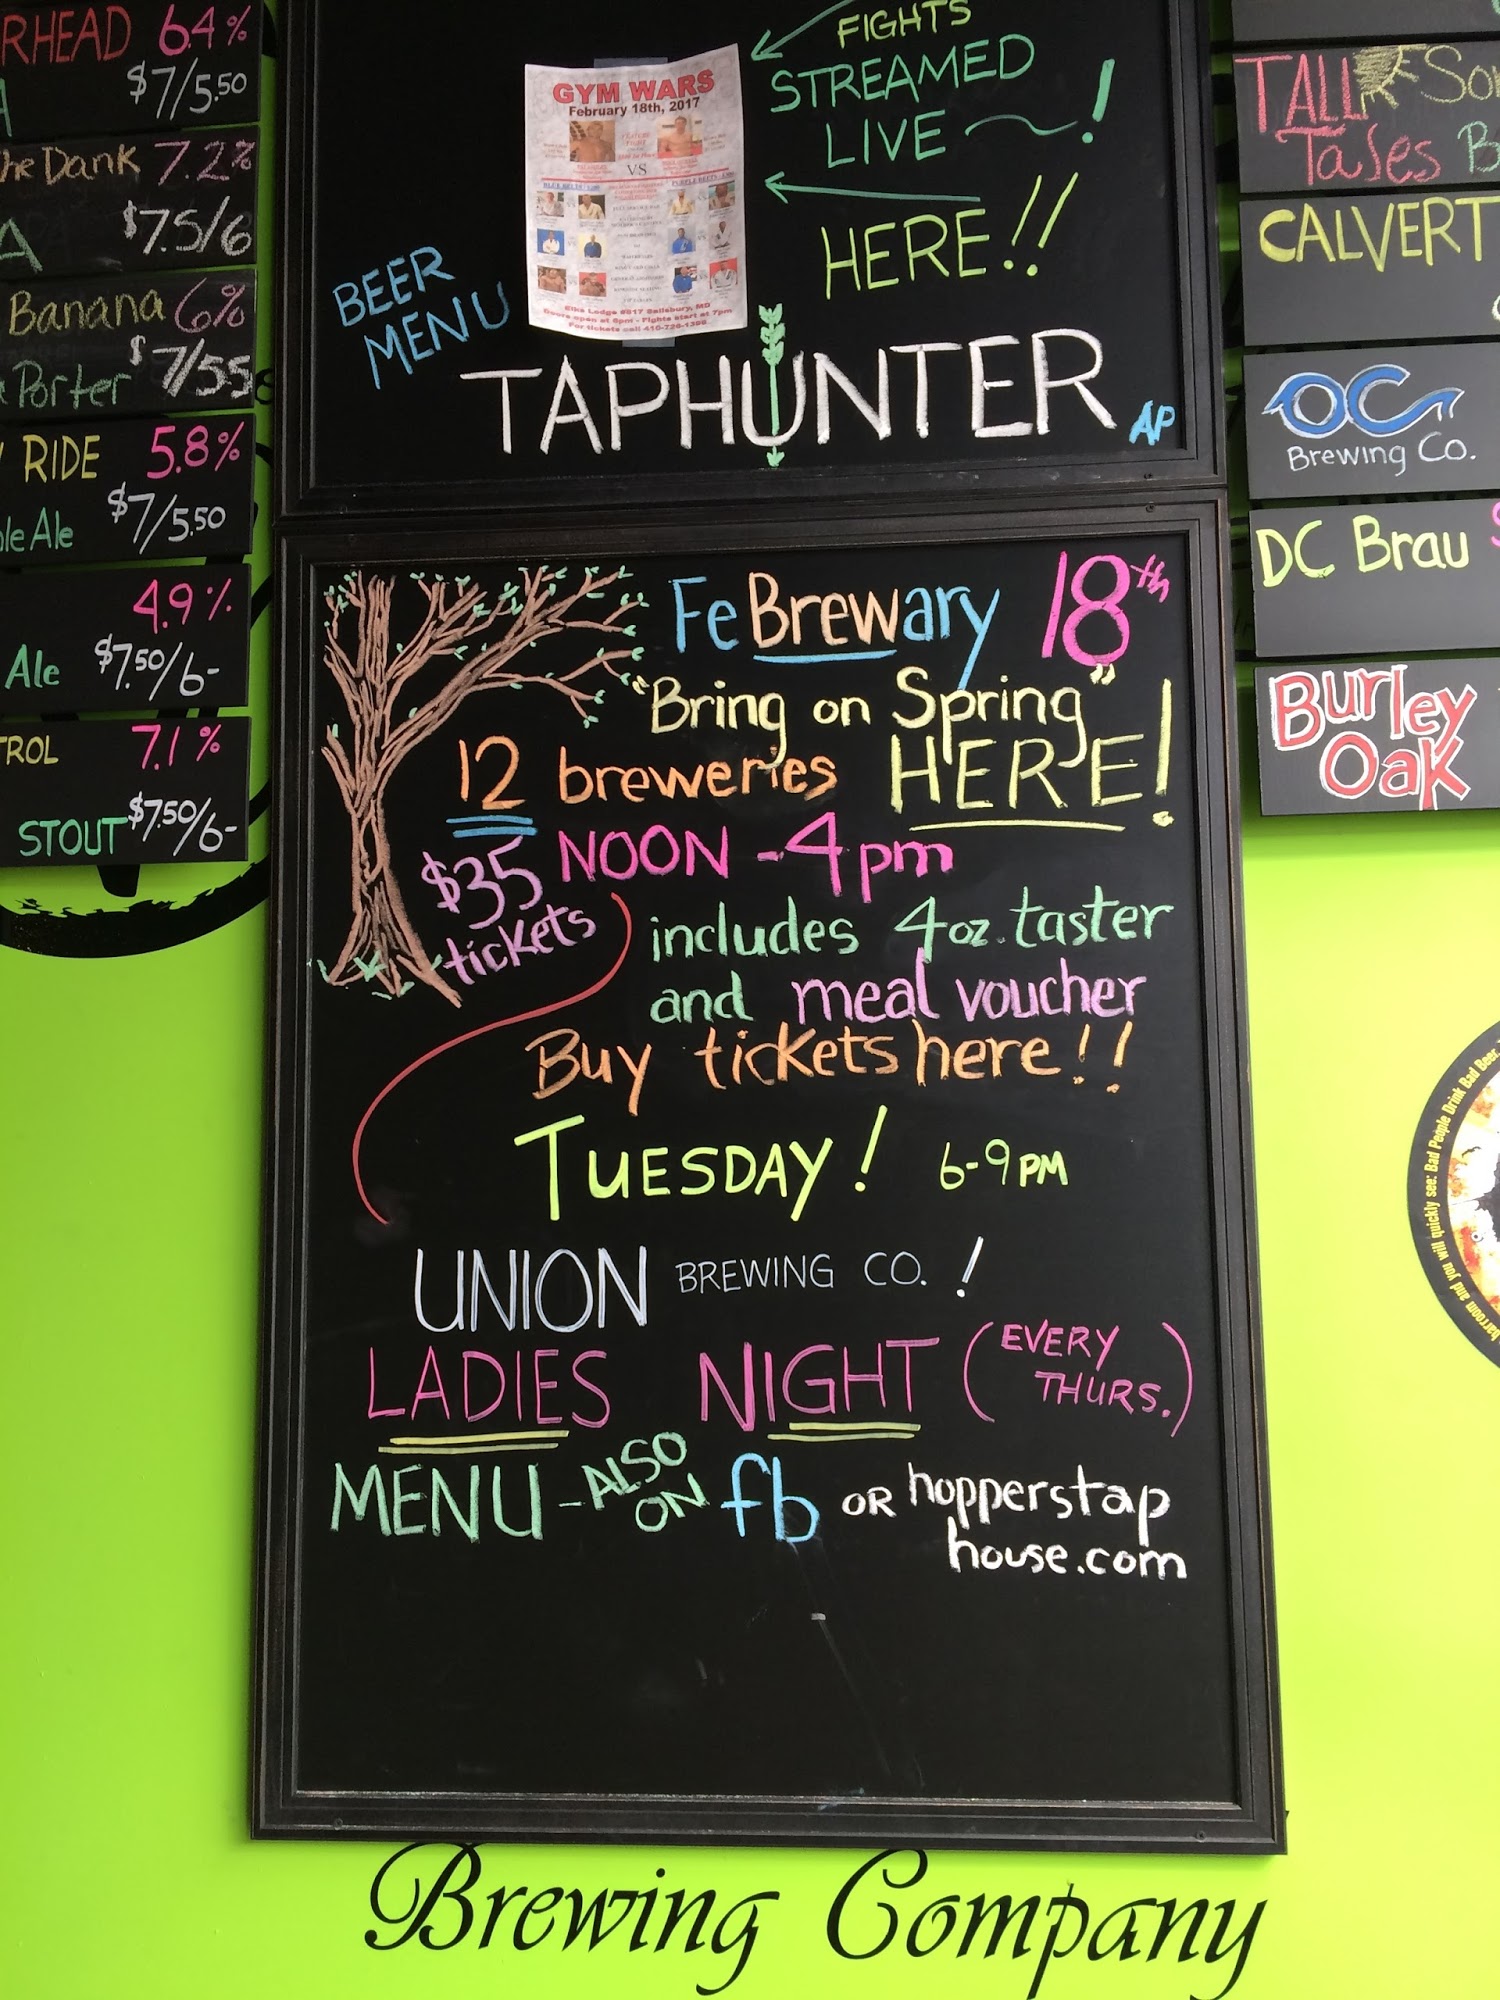 RHEAD 6.4%
$7/5.50
the Dank 7.2%
A $7.5/6
Banana 6%
Porter $7/5.5
RIDE 5.8%
Ale $7/5.50
4.9%
Ale $7.50/6-
TROL 7.1%
STOUT $7.50/6-
FIGHTS
STREAMED
LIVE ~ !
HERE!!
GYM WARS
February 18th, 2017
VS
Elks Lodge #817 Salisbury, MD
Doors open at 6pm - Fights start at 7pm
For tickets call 410-726-1396
BEER
MENU
TAPHUNTER
AP
FeBrewary 18th
"Bring on Spring"
12 breweries HERE!
NOON - 4pm
$35
tickets
includes 4oz. taster
and meal voucher
Buy tickets here!!
TUESDAY! 6-9PM
UNION BREWING CO. !
LADIES NIGHT (EVERY
THURS.)
MENU - ALSO
ON fb OR hopperstap
house.com
TALL
Tales
CALVERT
OC
Brewing Co.
DC Brau
Burley
Oak
barroom and you will quickly see: Bad People Drink Bad Beer.
Brewing Company